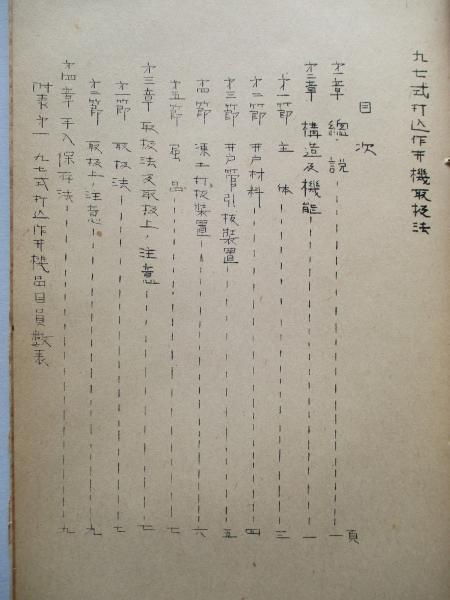 九七式打込作井機取扱法
目次
頁
才一章 總説 一
才二章 構造及機能 一
才一節 主体 三
才二節 井戸材料 四
才三節 井戸管引抜装置 五
才四節 凍土打抜装置 六
才五節 属品 七
才三章 取扱法及取扱上ノ注意 七
才一節 取扱法 七
才二節 取扱上ノ注意 九
才四章 手入保存法 九
附表才一 九七式打込作井機品目員数表